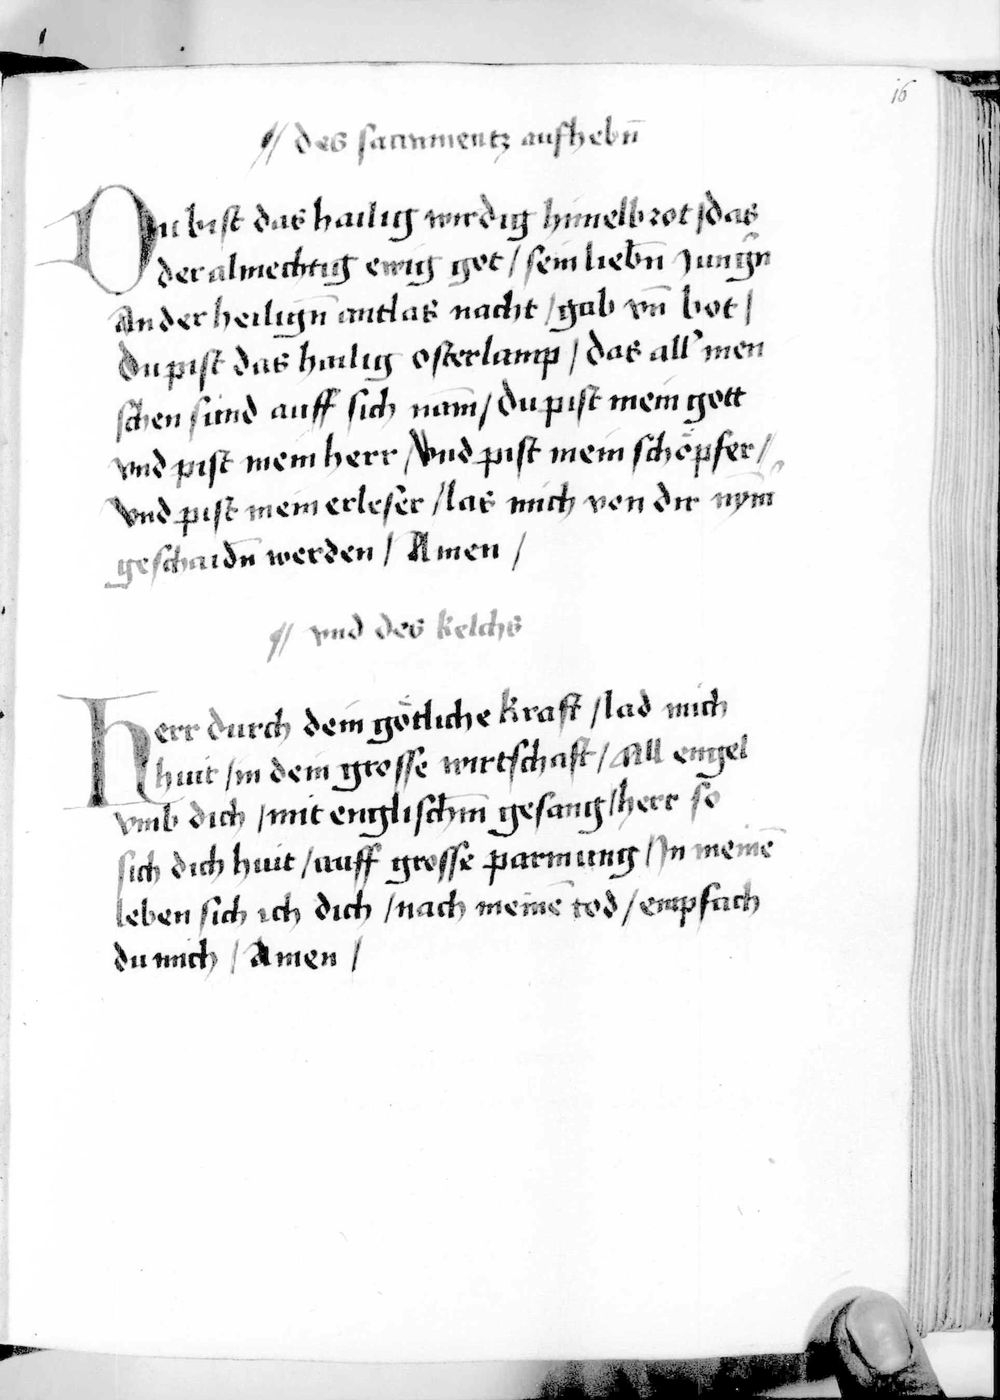 16
⸿ des sacramentz aufhebn̄
Du bist das hailig wirdig himelbrot / das
der almechtig ewig got / sein liebn̄ Jungn̄
An der heilign̄ antlas nacht / gab vn̄ bot /
Du pist das hailig osterlamp / das all' men
schen sünd auff sich nam̄ / du pist mein gott
vnd pist mein herr / Vnd pist mein schöpfer /
Vnd pist mein erleser / las mich von dir nym̄
geschaidn̄ werden / Amen /
⸿ vnd des kelchs
Herr durch dein götliche kraft / lad mich
huit / in dein grosse wirtschaft / All engel
vmb dich / mit englischm̄ gesang / herr so
sich dich huit / auff grosse parmung / In meinē
leben sich ich dich / nach meinē tod / empfach
du mich / Amen /